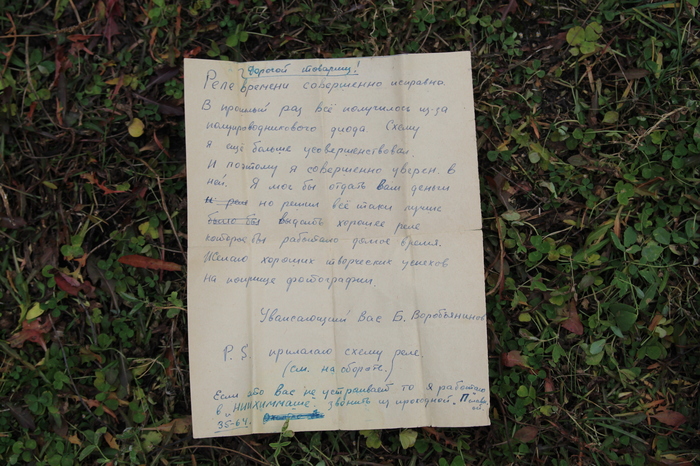 Дорогой товарищ!
Реле времени совершенно исправно.
В прошлый раз всё получилось из-за
полупроводникового диода. Схему
я ещё больше усовершенствовал.
И поэтому я совершенно уверен в
ней. Я мог бы отдать вам деньги
но решил всё таки лучше
было бы выдать хорошее реле
которое бы работало долгое время.
Желаю хороших творческих успехов
на поприще фотографии.
Уважающий Вас Б. Воробьянинов
P.S. прилагаю схему реле.
(см. на обороте.)
Если это Вас не устраивает то я работаю
в "НИИХИММАШЕ" звонить из проходной.
35-64.